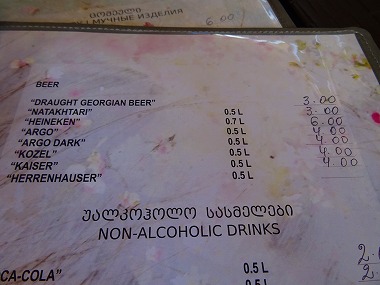 ცომეული
И МУЧНЫЕ ИЗДЕЛИЯ 6.00
BEER
"DRAUGHT GEORGIAN BEER" 3.00
"NATAKHTARI" 0.5 L 3.00
"HEINEKEN" 0.7 L 6.00
"ARGO" 0.5 L 4.00
"ARGO DARK" 0.5 L 4.00
"KOZEL" 0.5 L 4.00
"KAISER" 0.5 L 4.00
"HERRENHAUSER" 0.5 L
უალკოჰოლო სასმელები
NON-ALCOHOLIC DRINKS
CA-COLA" 0.5 L 2.
0.5 L 2.